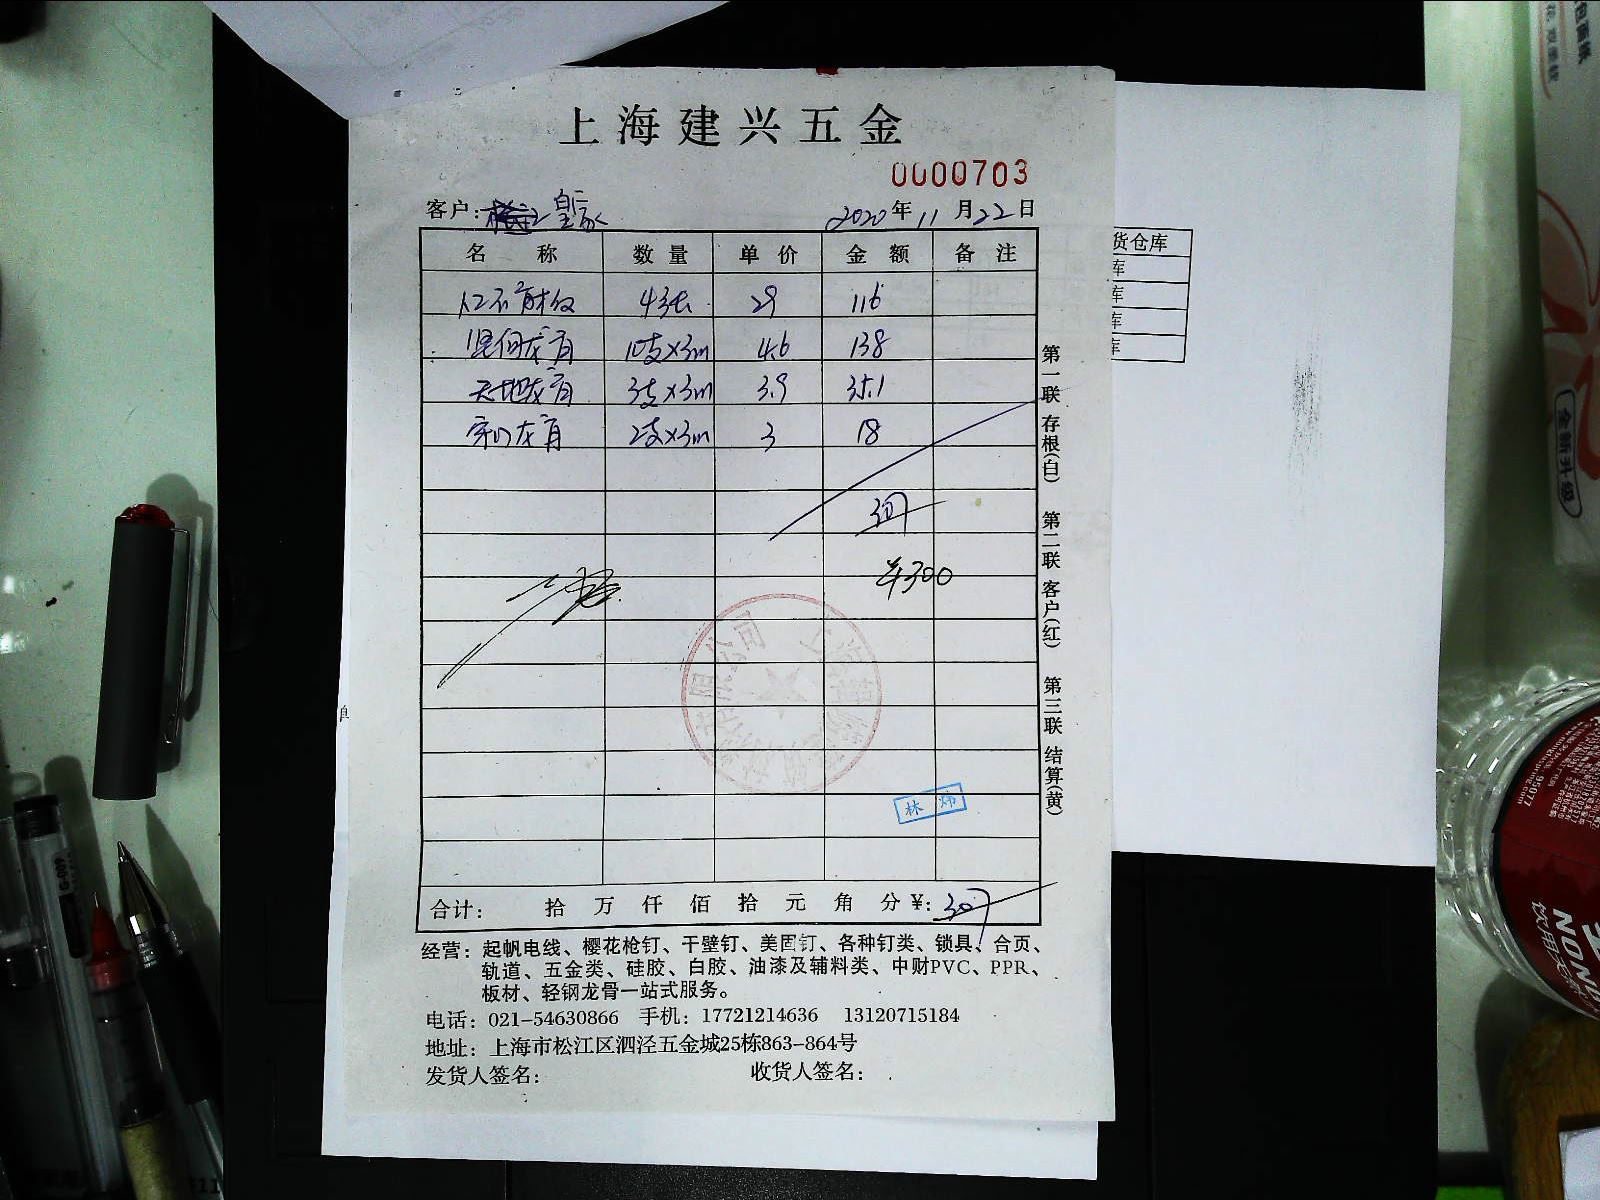 上海建兴五金
0000703
客户: 皇家
2020年11月22日
名称 数量 单价 金额 备注
4张 29 116
竖向龙骨 10支×3m 4.6 138
天地龙骨 3支×3m 3.9 35.1
穿心龙骨 2支×3m 3 18
307
¥300
林炜
合计: 拾 万 仟 佰 拾 元 角 分 ¥: 307
经营: 起帆电线、樱花枪钉、干壁钉、美固钉、各种钉类、锁具、合页、
轨道、五金类、硅胶、白胶、油漆及辅料类、中财PVC、PPR、
板材、轻钢龙骨一站式服务。
电话: 021-54630866 手机: 17721214636 13120715184
地址: 上海市松江区泗泾五金城25栋863-864号
发货人签名: 收货人签名:
第一联 存根(白) 第二联 客户(红) 第三联 结算(黄)
货仓库
库
库
库
库
全新升级
95077
NONG
饮用天然